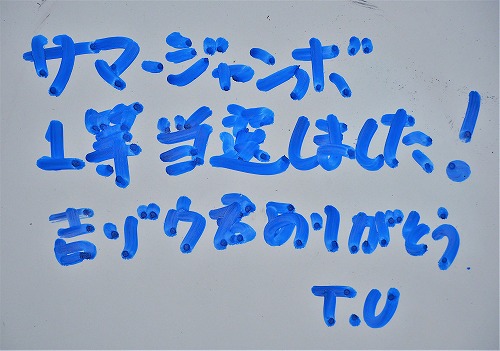 サマージャンボ
1等当選しました!
吉ゾウありがとう
T.U